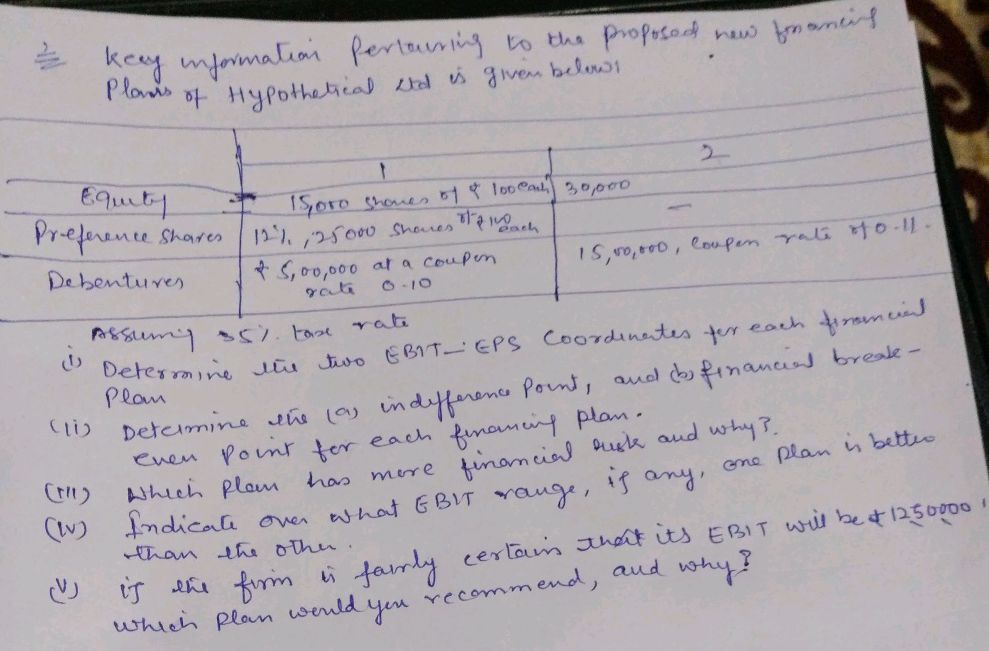 2 Key information Pertaining to the proposed new financing
Plans of Hypothetical Ltd is given below:
1 2
Equity 15,000 shares of ₹ 100 each 30,000
Preference Shares 12%, 25000 Shares of ₹ 100 each –
Debentures ₹ 5,00,000 at a coupon rate 0.10 15,00,000, Coupon rate of 0.11.
Assuming 35% tax rate
(i) Determine the two EBIT-EPS Coordinates for each financial
Plan
(ii) Determine the (a) indifference Point, and (b) financial break-
even point for each financing plan.
(iii) Which plan has more financial risk and why?
(iv) Indicate over what EBIT range, if any, one plan is better
than the other.
(v) if the firm is fairly certain that its EBIT will be ₹ 1250000,
which plan would you recommend, and why?